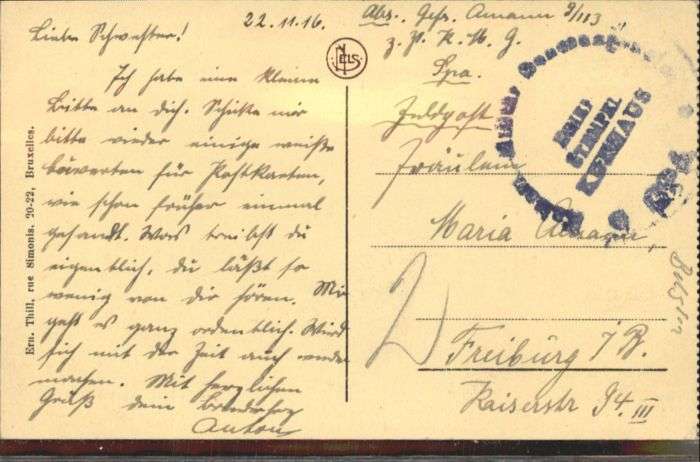 22.11.16.
Abs. Gefr. Amann 9/113
z. Zt. K.M.G.
Spa.
Liebe Schwester!
Ich habe eine kleine
Bitte an dich. Schicke mir
bitte wieder einige weiße
für Postkarten,
wie schon früher einmal
gesandt. Was treibst du
eigentlich, du läßt so
wenig von dir hören. Mir
geht es ganz ordentlich. Wird
sich mit der Zeit auch wieder
machen. Mit herzlichem
Gruß dein
Anton
NELS
Ern. Thill, rue Simonis, 20-22, Bruxelles.
Feldpost
Fräulein
Maria Amann,
Freiburg i/B.
Kaiserstr 94. III
STEMPEL
KURHAUS